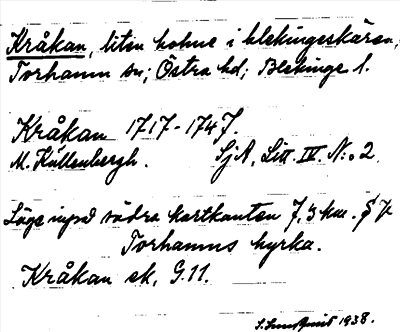 Kråkan, liten holme i blekingeskären,
Torhamn sn; Östra hd; Blekinge l.
Kråkan 1717-1747.
M. Küllenbergh. SjA, Litt. IV. N:o 2.
Läge invid södra kartkanten 7,3 km.
Torhamns kyrka.
Kråkan sk, G.11.
1938.